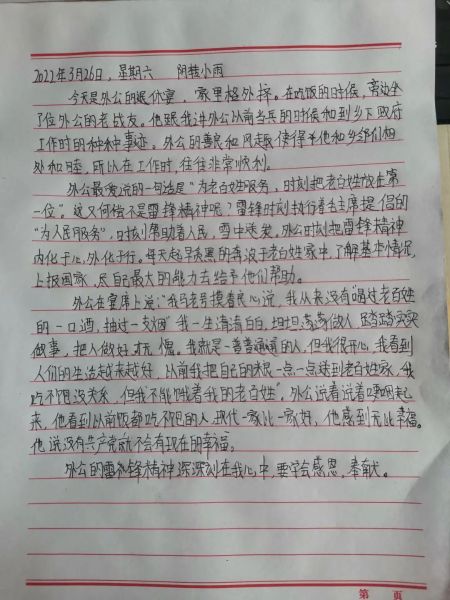 2022年3月26日，星期六 阴转小雨
今天是外公的退休宴，家里格外挤。在吃饭的时候，旁边坐
了位外公的老战友。他跟我讲外公以前当兵的时候和到乡下政府
工作时的种种事迹，外公的善良和 使得 他和乡邻们相
处和睦，所以在工作时，往往非常顺利。
外公最爱说的一句话是“为老百姓服务，时刻把老百姓放在第
一位”。这又何尝不是雷锋精神呢？雷锋时刻执行着毛主席提倡的
“为人民服务”，时刻帮助着人民，雪中送炭。外公时刻把雷锋精神
内化于心，外化于行。每天起早贪黑的奔波于老百姓家中，了解基本情况，
上报国家，尽自己最大的能力去给予他们帮助。
外公在宴席上说：“我 摸着良心说，我从来没有喝过老百姓
的一口酒，抽过一支烟”我一生清清白白，坦坦荡荡做人，踏踏实实
做事，把人做好 愧。我就是一普普通通的人，但我很开心，我看到
人们的生活越来越好，以前我把自己的粮一点一点送到老百姓家，我
吃不饱没关系，但我不能饿着我的老百姓”。外公说着说着哽咽起
来，他看到以前饭都吃不饱的人，现代一家比一家好，他感到无比幸福。
他说没有共产党就不会有现在的幸福。
外公的雷 锋精神深深刻在我心中，要学会感恩，奉献。
第 页